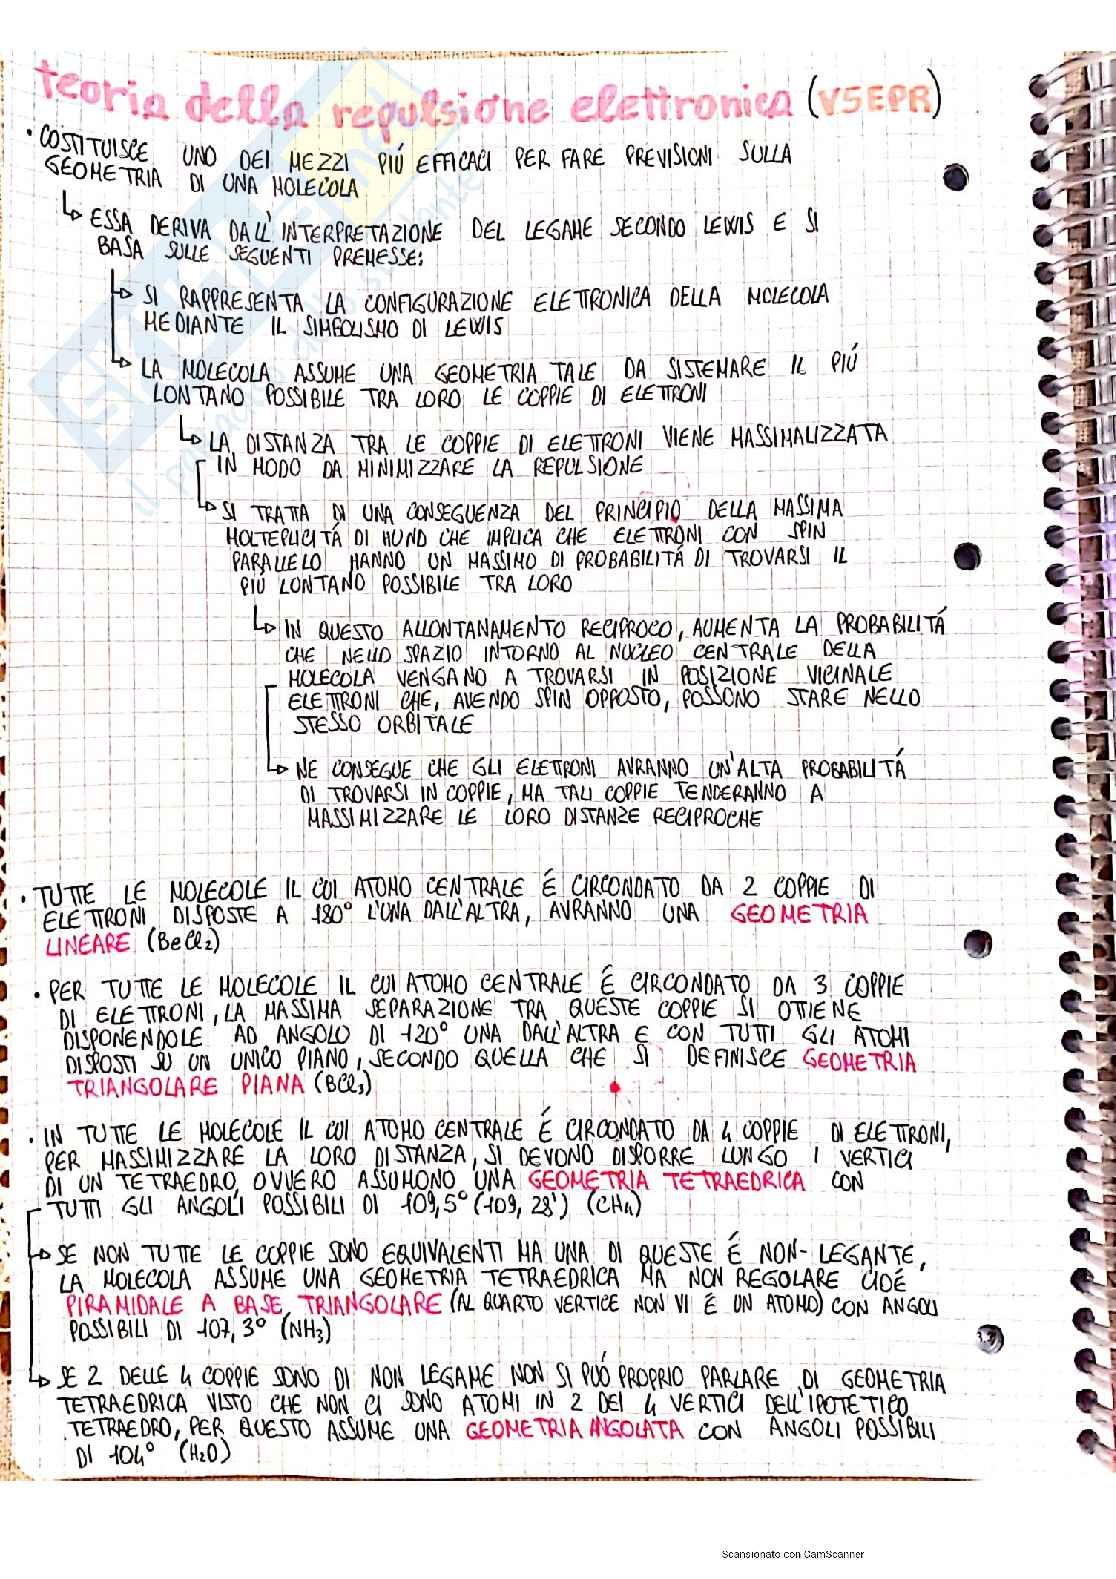 teoria della repulsione elettronica (VSEPR)
• COSTITUISCE UNO DEI MEZZI PIÚ EFFICACI PER FARE PREVISIONI SULLA
GEOMETRIA DI UNA MOLECOLA
↳ ESSA DERIVA DALL'INTERPRETAZIONE DEL LEGAME SECONDO LEWIS E SI
BASA SULLE SEGUENTI PREMESSE:
↳ SI RAPPRESENTA LA CONFIGURAZIONE ELETTRONICA DELLA MOLECOLA
MEDIANTE IL SIMBOLISMO DI LEWIS
↳ LA MOLECOLA ASSUME UNA GEOMETRIA TALE DA SISTEMARE IL PIÚ
LONTANO POSSIBILE TRA LORO LE COPPIE DI ELETTRONI
↳ LA DISTANZA TRA LE COPPIE DI ELETTRONI VIENE MASSIMALIZZATA
IN MODO DA MINIMIZZARE LA REPULSIONE
↳ SI TRATTA DI UNA CONSEGUENZA DEL PRINCIPIO DELLA MASSIMA
MOLTEPLICITÁ DI HUND CHE IMPLICA CHE ELETTRONI CON SPIN
PARALLELO HANNO UN MASSIMO DI PROBABILITÁ DI TROVARSI IL
PIÚ LONTANO POSSIBILE TRA LORO
↳ IN QUESTO ALLONTANAMENTO RECIPROCO, AUMENTA LA PROBABILITÁ
CHE NELLO SPAZIO INTORNO AL NUCLEO CENTRALE DELLA
MOLECOLA VENGANO A TROVARSI IN POSIZIONE VICINALE
ELETTRONI CHE, AVENDO SPIN OPPOSTO, POSSONO STARE NELLO
STESSO ORBITALE
↳ NE CONSEGUE CHE GLI ELETTRONI AVRANNO UN'ALTA PROBABILITÁ
DI TROVARSI IN COPPIE, MA TALI COPPIE TENDERANNO A
MASSIMIZZARE LE LORO DISTANZE RECIPROCHE
• TUTTE LE MOLECOLE IL CUI ATOMO CENTRALE É CIRCONDATO DA 2 COPPIE DI
ELETTRONI DISPOSTE A 180° L'UNA DALL'ALTRA, AVRANNO UNA GEOMETRIA
LINEARE (BeCl₂)
• PER TUTTE LE MOLECOLE IL CUI ATOMO CENTRALE É CIRCONDATO DA 3 COPPIE
DI ELETTRONI, LA MASSIMA SEPARAZIONE TRA QUESTE COPPIE SI OTTIENE
DISPONENDOLE AD ANGOLO DI 120° UNA DALL'ALTRA E CON TUTTI GLI ATOMI
DISPOSTI SU UN UNICO PIANO, SECONDO QUELLA CHE SI DEFINISCE GEOMETRIA
TRIANGOLARE PIANA (BCl₃)
• IN TUTTE LE MOLECOLE IL CUI ATOMO CENTRALE É CIRCONDATO DA 4 COPPIE DI ELETTRONI,
PER MASSIMIZZARE LA LORO DISTANZA, SI DEVONO DISPORRE LUNGO I VERTICI
DI UN TETRAEDRO, OVVERO ASSUMONO UNA GEOMETRIA TETRAEDRICA CON
TUTTI GLI ANGOLI POSSIBILI DI 109,5° (109, 28') (CH₄)
↳ SE NON TUTTE LE COPPIE SONO EQUIVALENTI MA UNA DI QUESTE É NON-LEGANTE,
LA MOLECOLA ASSUME UNA GEOMETRIA TETRAEDRICA MA NON REGOLARE CIOÉ
PIRAMIDALE A BASE TRIANGOLARE (AL QUARTO VERTICE NON VI É UN ATOMO) CON ANGOLI
POSSIBILI DI 107,3° (NH₃)
↳ SE 2 DELLE 4 COPPIE SONO DI NON LEGAME NON SI PUÓ PROPRIO PARLARE DI GEOMETRIA
TETRAEDRICA VISTO CHE NON CI SONO ATOMI IN 2 DEI 4 VERTICI DELL'IPOTETICO
TETRAEDRO, PER QUESTO ASSUME UNA GEOMETRIA ANGOLATA CON ANGOLI POSSIBILI
DI 104° (H₂O)
Scansionato con CamScanner